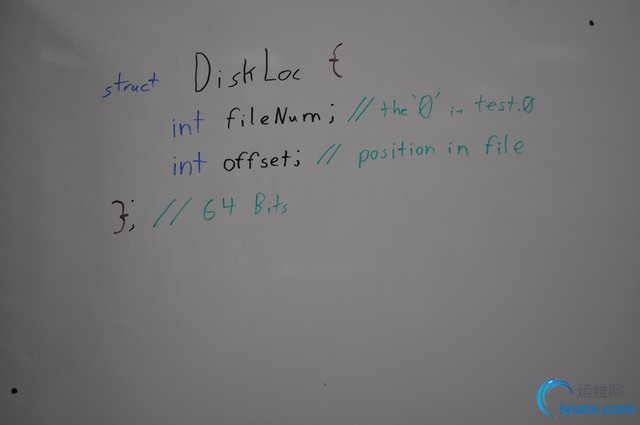 struct DiskLoc {
int fileNum; // the '0' in test.0
int offset; // position in file
}; // 64 Bits
运维网
iyunv.com